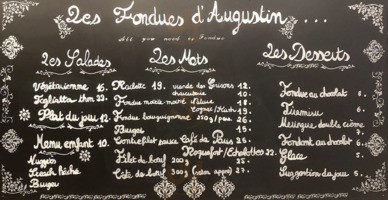 Les Fondues d'Augustin ...
All you need is Fondue
Les Salades
Végétarienne 16.
Tagliatta thon 22.
Plat du jour 12.
Menu enfant 10.
Nuggets
Steack haché
Burger
Les Mets
Raclette 19. viande des Grisons 12.
charcuterie 10.
Fondue moitié-moitié
Fondue bourguignonne 250g/pers 26.
Burger 15.
Contrefilet sauce Café de Paris 26.
Roquefort/Echalottes 22.
Filet de bœuf 200g
Côte de bœuf
Les Desserts
Fondue au chocolat 8.
Tiramisu
Meringue double crème 7.
Fondant au chocolat 6.
Glace
Suggestion du jour 5.